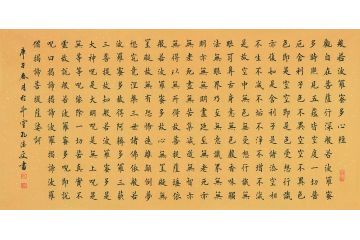 般若波羅蜜多心經
觀自在菩薩行深般若波羅蜜
多時照見五蘊皆空度一切苦
厄舍利子色不異空空不異色
色即是空空即是色受想行識
亦復如是舍利子是諸法空相
不生不滅不垢不淨不增不減
是故空中無色無受想行識無
眼耳鼻舌身意無色聲香味觸
法無眼界乃至無意識界無無
明亦無無明盡乃至無老死亦
無老死盡無苦集滅道無智亦
無得以無所得故菩提薩埵依
般若波羅蜜多故心無罣礙無
罣礙故無有恐怖遠離顛倒夢
想究竟涅槃三世諸佛依般若
波羅蜜多故得阿耨多羅三藐
三菩提故知般若波羅蜜多是
大神呪是大明呪是無上呪是
無等等呪能除一切苦真實不
虛故說般若波羅蜜多呪即說
呪曰揭諦揭諦波羅揭諦波羅
僧揭諦菩提薩婆訶
庚子春月於書